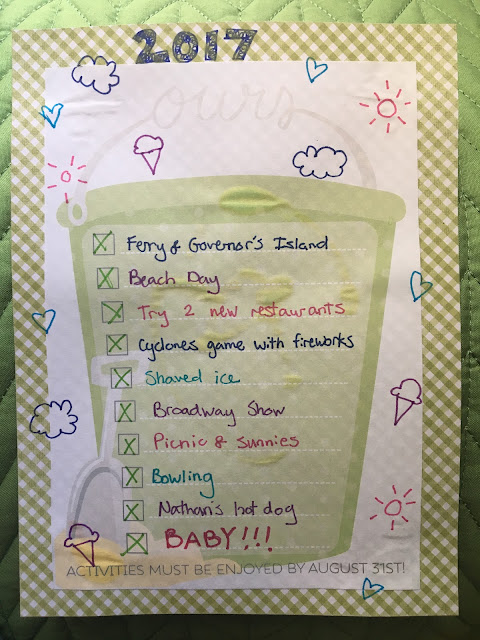 2017
ours
Ferry & Governor's Island
Beach Day
Try 2 new restaurants
Cyclones game with fireworks
Shaved ice
Broadway Show
Picnic & sunnies
Bowling
Nathan's hot dog
BABY!!!
ACTIVITIES MUST BE ENJOYED BY AUGUST 31ST!